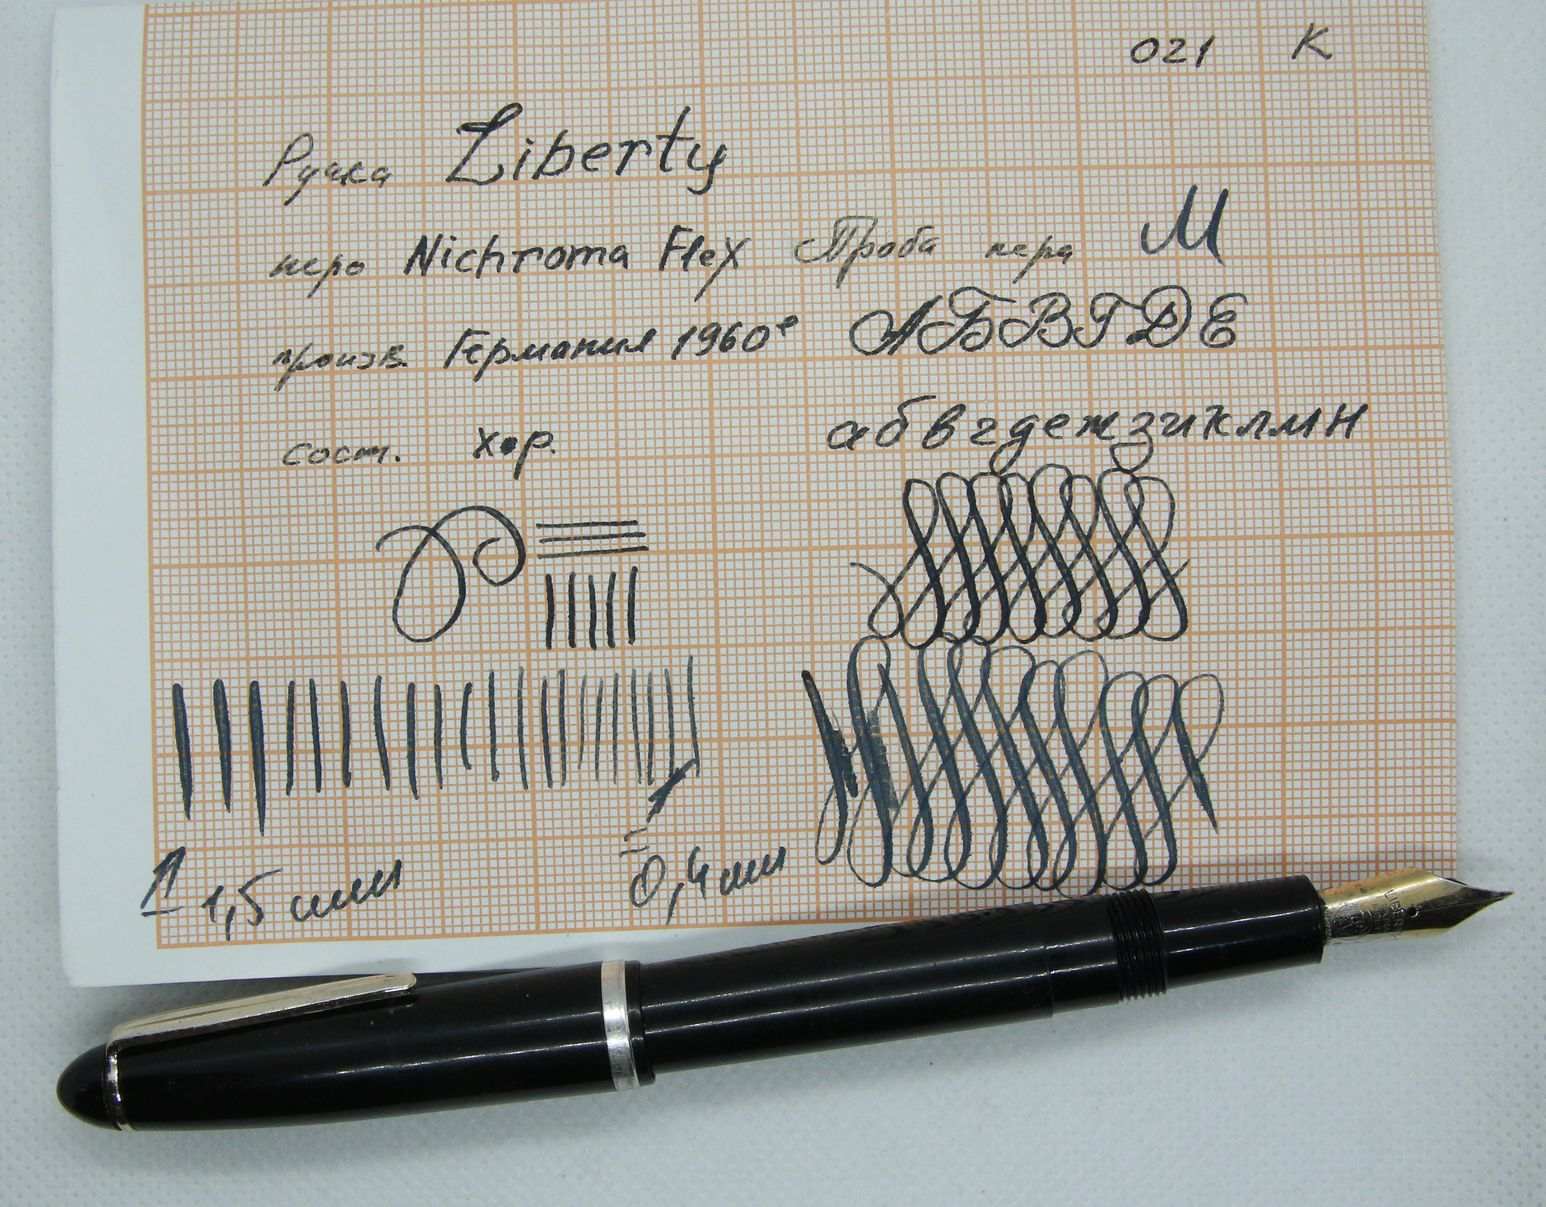 021 К
Ручка Liberty
перо Nichroma Flex Проба пера М
произв. Германия 1960е АБВГДЕ
сост. хор. абвгдежзиклмн
1,5 мм 0,4 мм